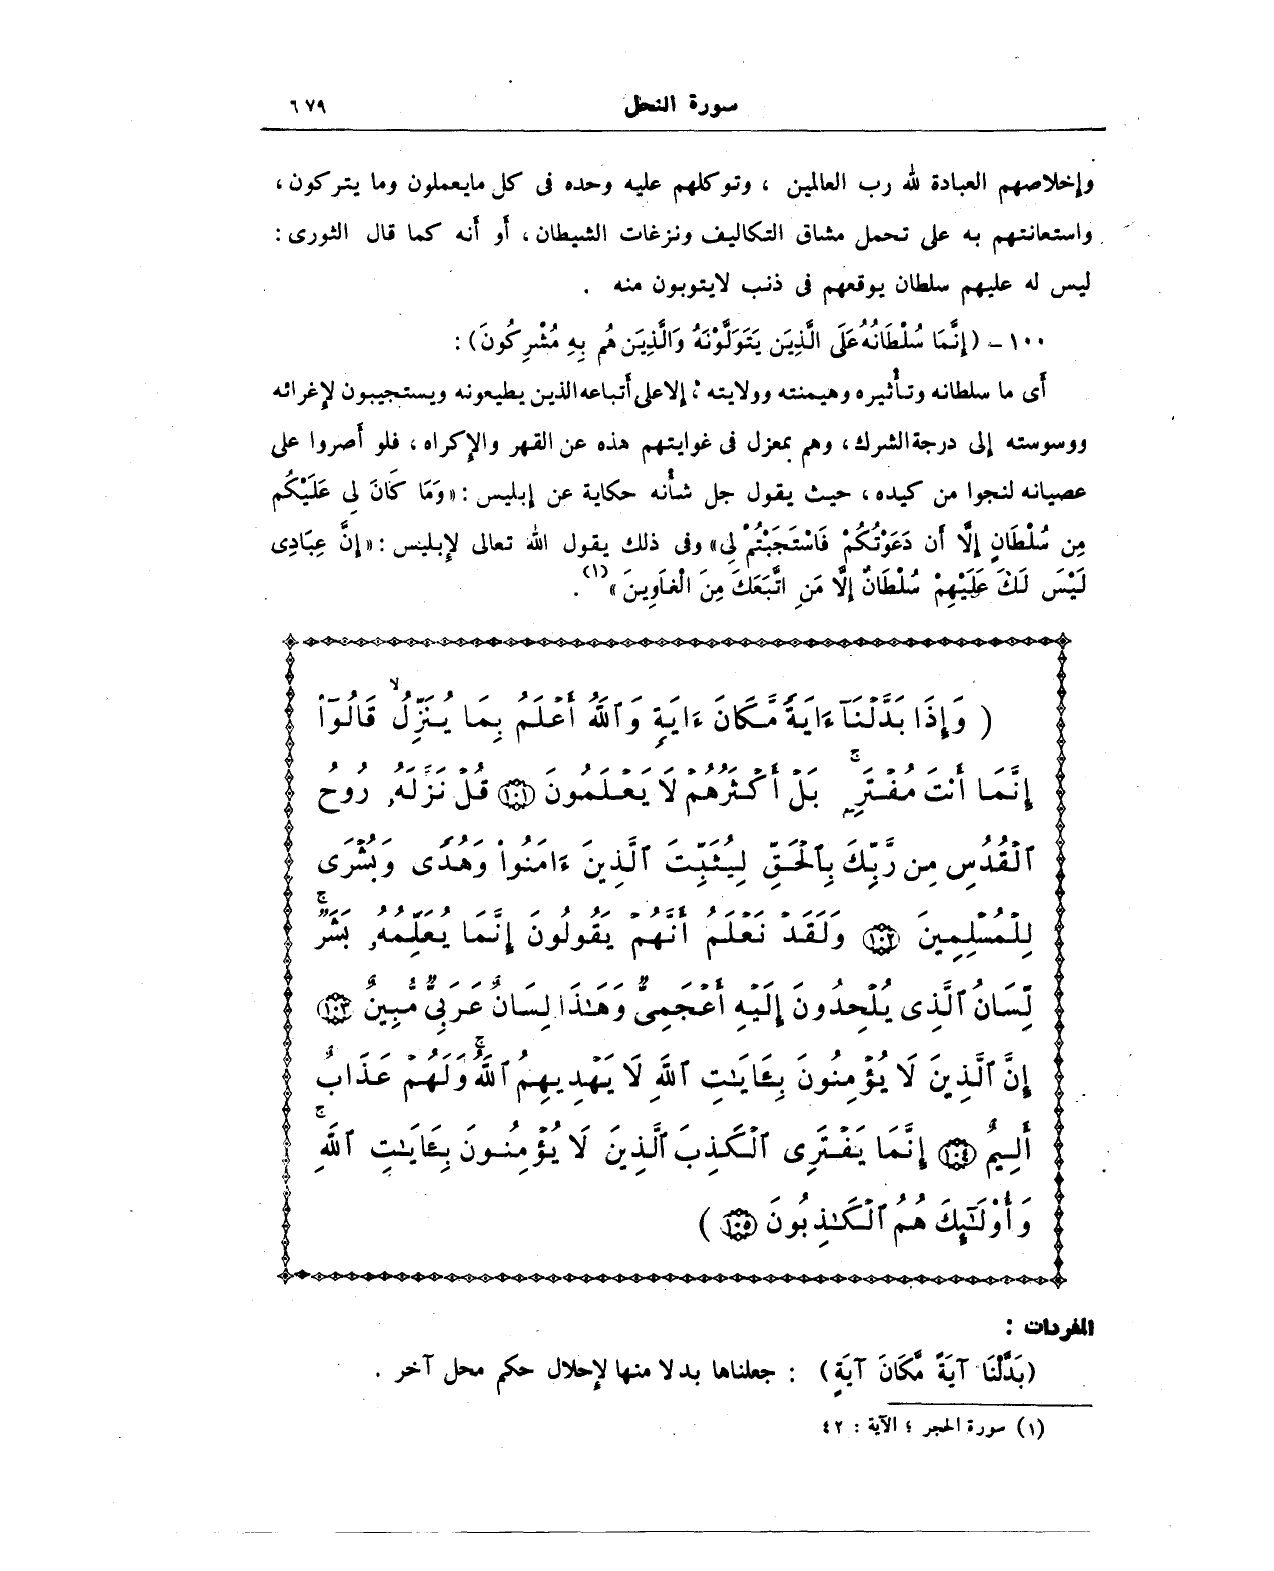 سورة النحل ٦٧٩
وإخلاصهم العبادة لله رب العالمين ، وتوكلهم عليه وحده فى كل مايعملون وما يتركون ،
واستعانتهم به على تحمل مشاق التكاليف ونزغات الشيطان ، أو أنه كما قال الثورى :
ليس له عليهم سلطان يوقعهم فى ذنب لايتوبون منه .
١٠٠ – (إِنَّمَا سُلْطَانُهُ عَلَى الَّذِينَ يَتَوَلَّوْنَهُ وَالَّذِينَ هُم بِهِ مُشْرِكُونَ) :
أى ما سلطانه وتأثيره وهيمنته وولايته ؛ إلا على أتباعه الذين يطيعونه ويستجيبون لإغرائه
ووسوسته إلى درجة الشرك ، وهم بمعزل فى غوايتهم هذه عن القهر والإكراه ، فلو أصروا على
عصيانه لنجوا من كيده ، حيث يقول جل شأنه حكاية عن إبليس : «وَمَا كَانَ لِىَ عَلَيْكُم
مِن سُلْطَانٍ إِلَّا أَن دَعَوْتُكُمْ فَاسْتَجَبْتُمْ لِى» وفى ذلك يقول الله تعالى لإبليس : «إِنَّ عِبَادِى
لَيْسَ لَكَ عَلَيْهِمْ سُلْطَانٌ إِلَّا مَنِ اتَّبَعَكَ مِنَ الْغَاوِينَ» (١) .
( وَإِذَا بَدَّلْنَآ ءَايَةً مَّكَانَ ءَايَةٍ وَٱللَّهُ أَعْلَمُ بِمَا يُنَزِّلُ ۙ قَالُوٓا۟
إِنَّمَآ أَنتَ مُفْتَرٍۭ ۚ بَلْ أَكْثَرُهُمْ لَا يَعْلَمُونَ ١٠١ قُلْ نَزَّلَهُۥ رُوحُ
ٱلْقُدُسِ مِن رَّبِّكَ بِٱلْحَقِّ لِيُثَبِّتَ ٱلَّذِينَ ءَامَنُوا۟ وَهُدًى وَبُشْرَىٰ
لِلْمُسْلِمِينَ ١٠٢ وَلَقَدْ نَعْلَمُ أَنَّهُمْ يَقُولُونَ إِنَّمَا يُعَلِّمُهُۥ بَشَرٌ ۗ
لِّسَانُ ٱلَّذِى يُلْحِدُونَ إِلَيْهِ أَعْجَمِىٌّ وَهَـٰذَا لِسَانٌ عَرَبِىٌّ مُّبِينٌ ١٠٣
إِنَّ ٱلَّذِينَ لَا يُؤْمِنُونَ بِـَٔايَـٰتِ ٱللَّهِ لَا يَهْدِيهِمُ ٱللَّهُ وَلَهُمْ عَذَابٌ
أَلِيمٌ ١٠٤ إِنَّمَا يَفْتَرِى ٱلْكَذِبَ ٱلَّذِينَ لَا يُؤْمِنُونَ بِـَٔايَـٰتِ ٱللَّهِ ۖ
وَأُو۟لَـٰٓئِكَ هُمُ ٱلْكَـٰذِبُونَ ١٠٥ )
المفردات :
(بَدَّلْنَا آيَةً مَّكَانَ آيَةٍ) : جعلناها بدلا منها لإحلال حكم محل آخر .
(١) سورة الحجر ؛ الآية : ٤٢